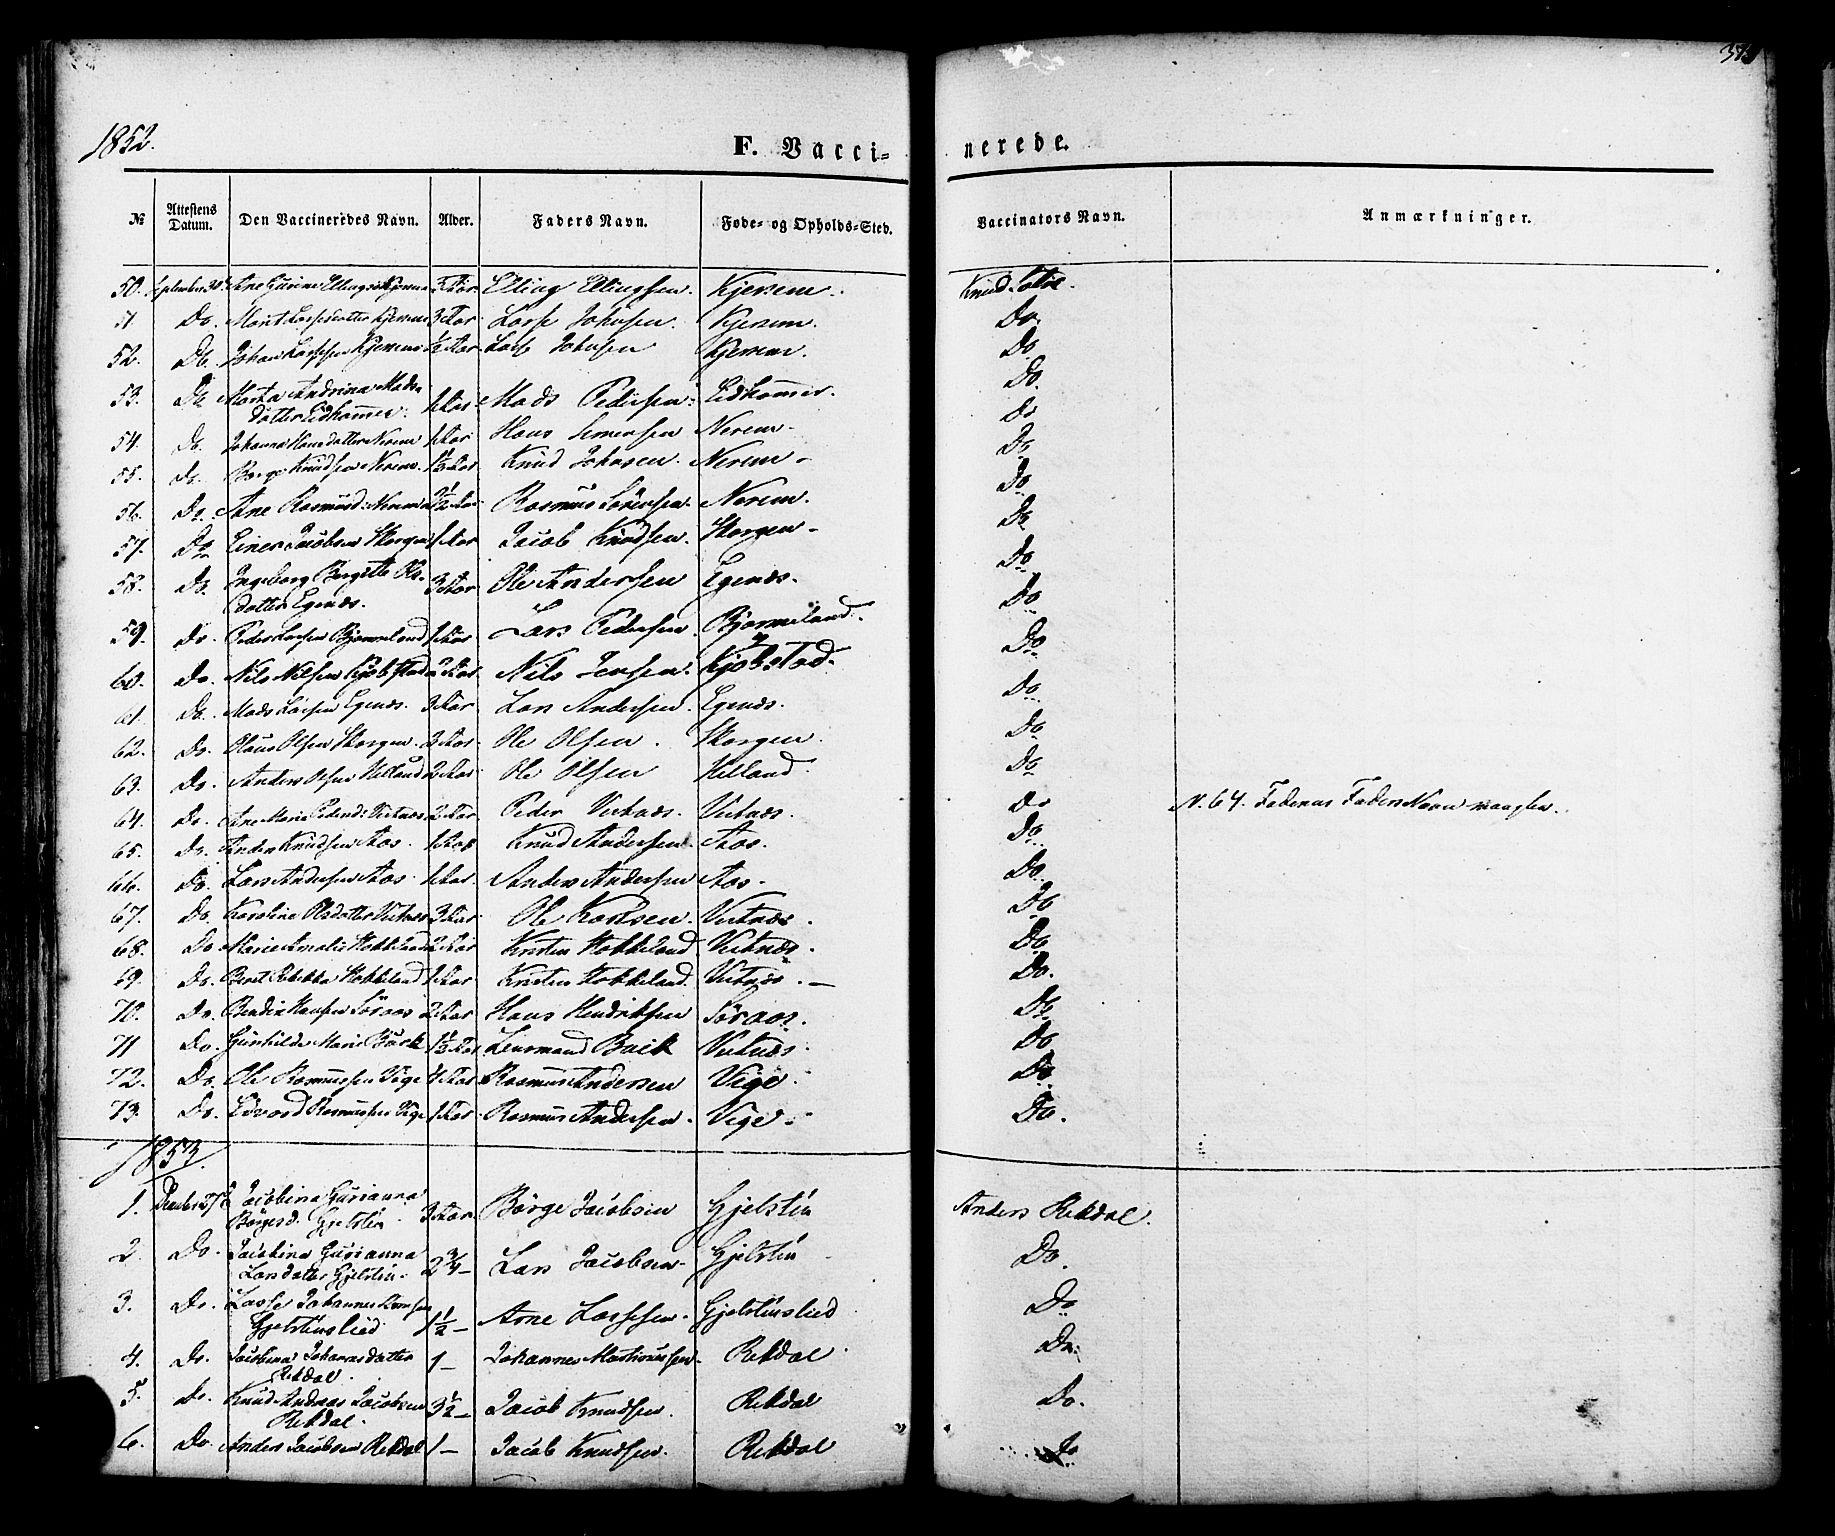 373
1852.
F. Vacci-
nerede.
№ Attestens Datum. Den Vaccineredes Navn. Alder. Faders Navn. Føde- og Opholds-Sted. Vaccinators Navn. Anmærkninger.
50. September 30 Ane Elling Ellingsen. Kjerem. Knud
51. Do. Marit Larsdatter Kjerem 3 Aar Johnsen. Kjerem. Do.
52. Do. Johan Kjerem ½ Aar Johnsen Kjerem. Do
53. Do Marta Andrina Mads-
datter Eidhammer. 1 Aar. Mads Pedersen. Eidhammer. Do.
54. Do. Johanna Hansdatter Nerem 1 Aar Hans Nerem. Do
55. Do. Knudsen Nerem. 1½ Aar Knud Johnsen. Nerem. Do
56. Do. Ane Rasmusd: Nerem 2½ Aar Rasmus Nerem. Do
57. Do Einer Jacobsen Skorgen 1 Aar Jacob Knudsen. Skorgen. Do
58. Do. Ingeborg Bergitte Ols-
datter Egenæs. 3 Aar Ole Andersen Egenæs. Do
59. Do. Peder Larsen Bjermeland 1 Aar Lars Pedersen. Bjermeland. Do
60. Do. Nils Nilsen Kjøbstad 2 Aar Nils Jensen. Kjøbstad. Do
61. Do. Mads Larsen Egenæs. 3 Aar Lars Andersen. Egenæs. Do
62. Do. Olaus Olsen Skorgen. 3 Aar. Ole Olsen. Skorgen. Do
63. Do. Anders Olsen Helland 2 Aar. Ole Olsen Helland. Do
64. Do. Ane Maria Pedersd: Veblnæs 2 Aar Peder Do N. 64. Faderens Faders Navn mangler.
65. Do. Anders Knudsen Aas. 1 Aar Knud Andersen. Aas. Do
66. Do. Lars Andersen Aas. 1 Aar. Anders Andersen Aas. Do.
67. Do. Karoline Olsdatter 3 Aar. Ole Karlsen. Do
68. Do Marie Amalie Hokkeland 2 Aar Kristen Hokkeland. Do.
69. Do. Beret Rebekka Hokkeland 1 Aar Kristen Hokkeland. Do.
70. Do. Hansen Søraas 2 Aar Hans Hendriksen Søraas. Do
71 Do. Gunhilde Marie Back 1½ Aar Back Do
72. Do. Ole Rasmussen Vige 4 Aar Rasmus Andersen Vige. Do
73. Do. Edvard Rasmussen Vige 1 Aar. Rasmus Andersen. Vige. Do.
1853.
1. December 27 Jacobina Gurianna
Børgesd. Gjelstén. 3 Aar. Børge Jacobsen Gjelstén Anders Rekdal.
2. Do. Jacobina Gurianna
Larsdatter Gjelstén. 2 ¾ – Lars Jacobsen. Gjelstén Do.
3. Do. Lasse Johannes Arnesen
Gjelsténslied 1 ½ – Arne Lassesen. Gjelsténslied Do
4. Do. Jacobina Johannesdatter
Rekdal. 1 – Johannes Martinussen. Rekdal. Do.
5. Do. Knud Andreas Jacobsen
Rekdal. 3 ½ – Jacob Knudsen. Rekdal Do.
6. Do. Anders Jacobsen Rekdal 1 – Jacob Knudsen. Rekdal Do